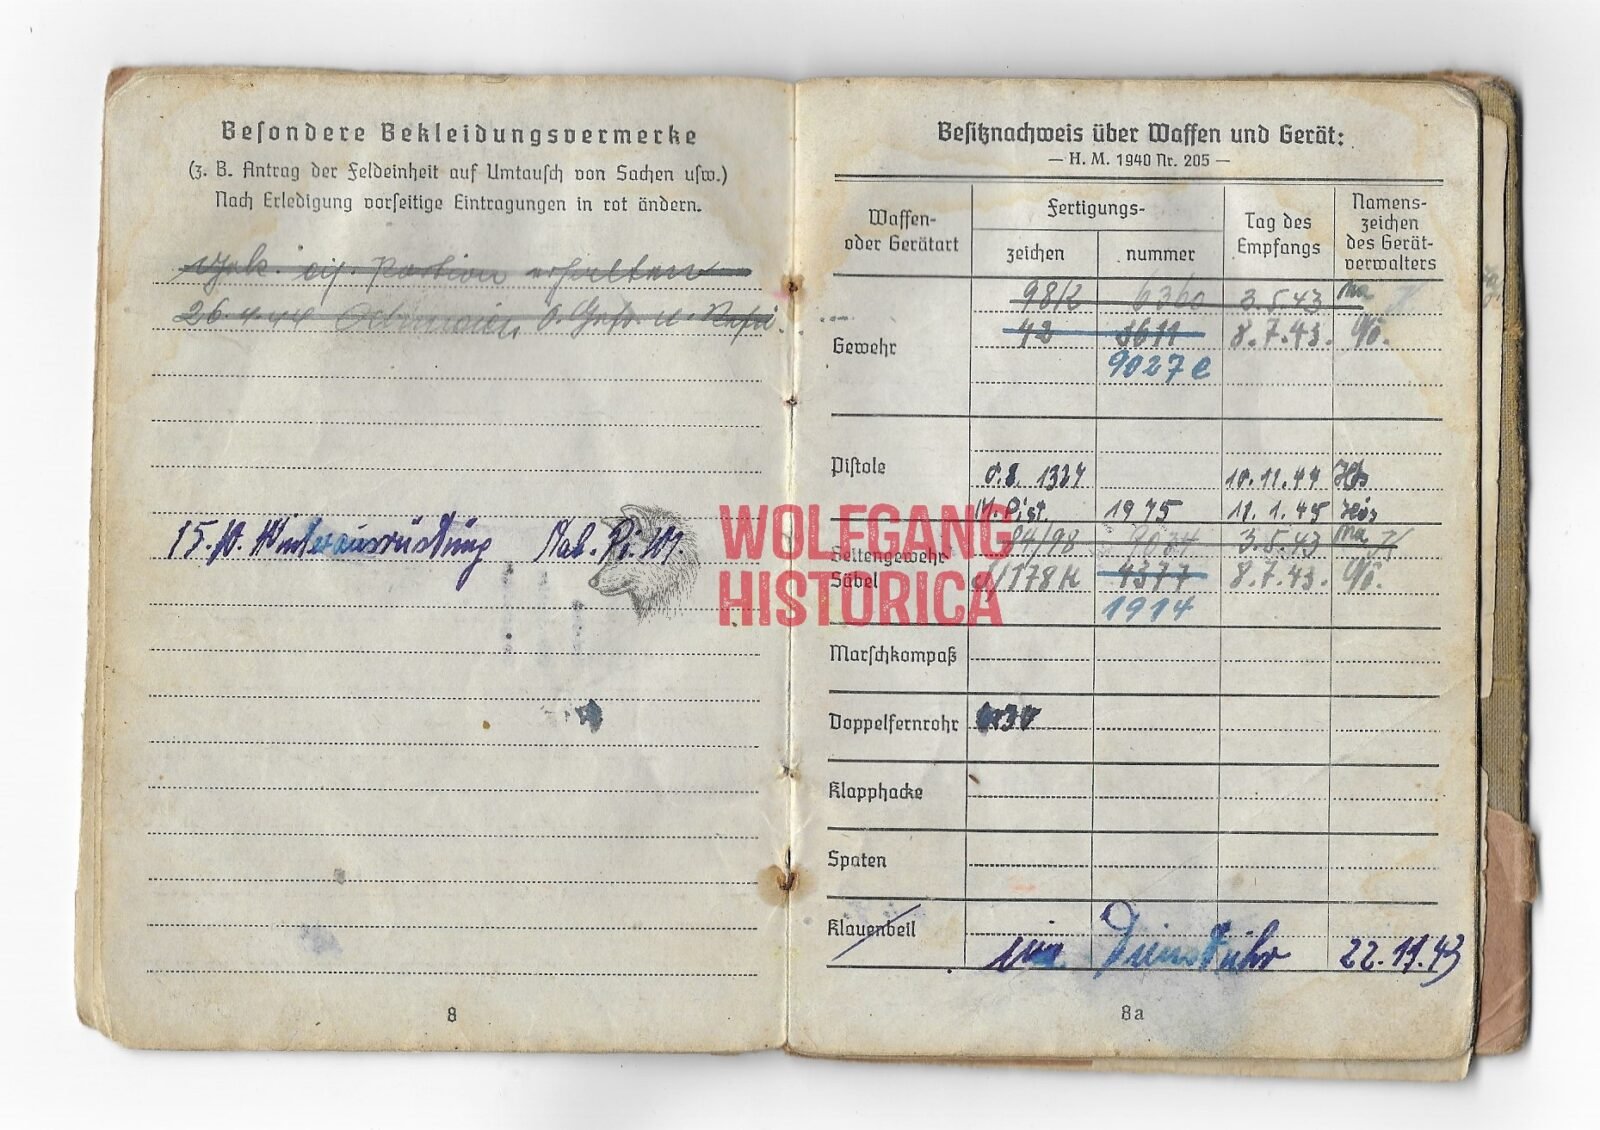 Besondere Bekleidungsvermerke
(z. B. Antrag der Feldeinheit auf Umtausch von Sachen usw.)
Nach Erledigung vorseitige Eintragungen in rot ändern.
erhalten
26.4.44
15.10. Winterausrüstung
8
Besitznachweis über Waffen und Gerät:
— H. M. 1940 Nr. 205 —
Waffen- oder Gerätart
Fertigungs-
zeichen
nummer
Tag des Empfangs
Namens-zeichen des Gerät-verwalters
Gewehr
98k 6360 3.5.43 Ma
42 8.7.43.
9027 c
Pistole
0.8. 1334 10.11.44
M. Pist. 1975 11.1.45
Seitengewehr
84/98 9034 3.5.43 Ma
Säbel
4377 8.7.43.
1914
Marschkompaß
Doppelfernrohr
Klapphacke
Spaten
Klauenbeil
Dienstuhr 22.11.43
8a
WOLFGANG
HISTORICA